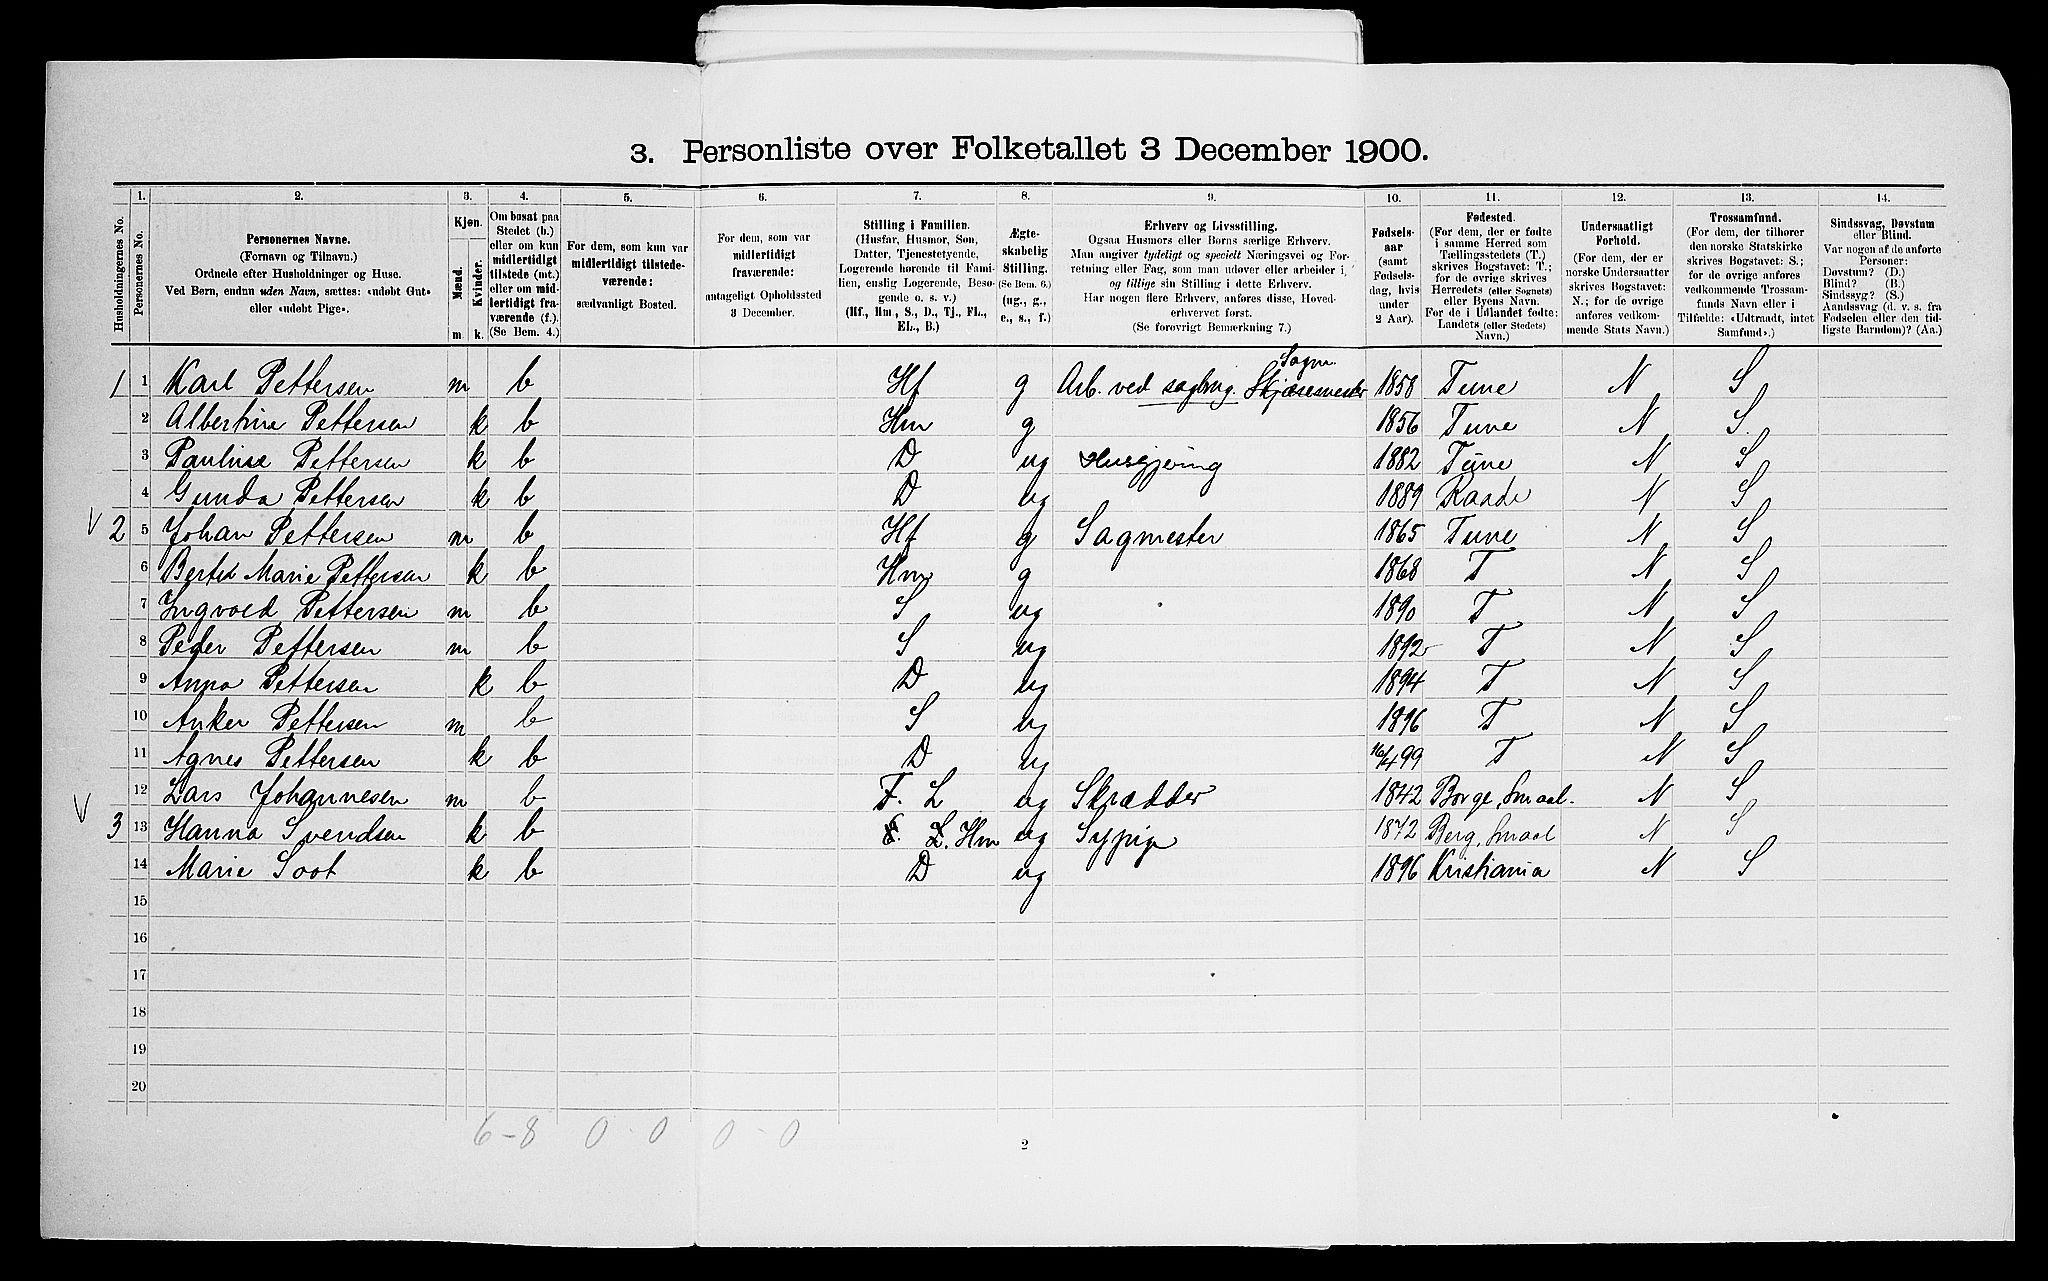 3. Personliste over Folketallet 3 December 1900.
Husholdningernes No.
1. Personernes No.
2. Personernes Navne. (Fornavn og Tilnavn.) Ordnede efter Husholdninger og Huse. Ved Børn, endnu uden Navn, sættes: «udøbt Gut» eller «udøbt Pige».
3. Kjøn. Mænd. Kvinder. m. k.
4. Om bosat paa Stedet (b.) eller om kun midlertidigt tilstede (mt.) eller om midlertidigt fraværende (f.). (Se Bem. 4.)
5. For dem, som kun var midlertidigt tilstedeværende: sædvanligt Bosted.
6. For dem, som var midlertidigt fraværende: antageligt Opholdssted 3 December.
7. Stilling i Familien. (Husfar, Husmor, Søn, Datter, Tjenestetyende, Logerende hørende til Familien, enslig Logerende, Besøgende o. s. v.) (Hf, Hm, S., D., Tj., FL., EL., B.)
8. Ægteskabelig Stilling. (Se Bem. 6.) (ug., g., e., s., f.)
9. Erhverv og Livsstilling. Ogsaa Husmors eller Børns særlige Erhverv. Man angiver tydeligt og specielt Næringsvei og Forretning eller Fag, som man udøver eller arbeider i, og tillige sin Stilling i dette Erhverv. Har nogen flere Erhverv, anføres disse, Hovederhvervet først. (Se forøvrigt Bemærkning 7.)
10. Fødselsaar (samt Fødselsdag, hvis under 2 Aar).
11. Fødested. (For dem, der er fødte i samme Herred som Tællingsstedets (T.) skrives Bogstavet: T.; for de øvrige skrives Herredets (eller Sognets) eller Byens Navn. For de i Udlandet fødte: Landets (eller Stedets) Navn.)
12. Undersaatligt Forhold. (For dem, der er norske Undersaatter skrives Bogstavet: N.; for de øvrige anføres vedkommende Stats Navn.)
13. Trossamfund. (For dem, der tilhører den norske Statskirke skrives Bogstavet: S.; for de øvrige anføres vedkommende Trossamfunds Navn eller i Tilfælde: «Udtraadt, intet Samfund».)
14. Sindssvag, Døvstum eller Blind. Var nogen af de anførte Personer: Døvstum? (D.) Blind? (B.) Sindssyg? (S.) Aandssvag (d. v. s. fra Fødselen eller den tidligste Barndom)? (Aa.)
1 1 Karl Pettersen m b Hf g Arb. ved sagbrug. 1858 Tune N S
2 Albertine Pettersen k b Hm g 1856 Tune N S.
3 Pauline Pettersen k b D ug Husgjering 1882 Tune N S
4 Gunda Pettersen k b D ug 1889 Raade N S
V 2 5 Johan Pettersen m b Hf g Sagmester 1865 Tune N S
6 Marie Pettersen k b Hm g 1868 T N S
7 Ingvold Pettersen m b S ug 1890 T N S
8 Peder Pettersen m b S ug 1892 T N S
9 Anna Pettersen k b D ug 1894 T N S
10 Anker Pettersen m b S ug 1896 T N S
11 Agnes Pettersen k b D ug 16/4 99 T N S
12 Lars Johannesen m b F. L ug Skrædder 1842 Borge, Smaal. N S
V 3 13 Hanna Svendsen k b L. Hm ug Sypige 1872 Berg, Smaal N S
14 Marie Soot k b D ug 1896 Kristiania N S
15
16
17
18
19
20
6-8 0-0 0-0
2